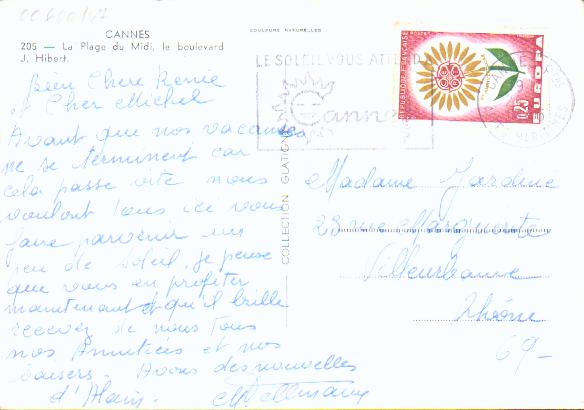 00600147
CANNES
205 — La Plage du Midi, le boulevard
J. Hibert.
COULEURS NATURELLES
Bien Chere Renie
et Cher Michel
Avant que nos vacances
ne se terminent car
cela passe vite nous
voulont tous ice vous
faire parvenir un
peu de soleil, je pense
que vous en profiter
maintenant et qu'il brille
recever de nous tous
nos Amitiées et nos
baisers. Avons des nouvelles
d'Alain.
COLLECTION GLATIGNY
LE SOLEIL VOUS ATTEND A
Cannes
REPUBLIQUE FRANÇAISE POSTES
0,25
EUROPA
Madame Jardine
23 rue Marguerite
Villeurbanne
Rhône
69-